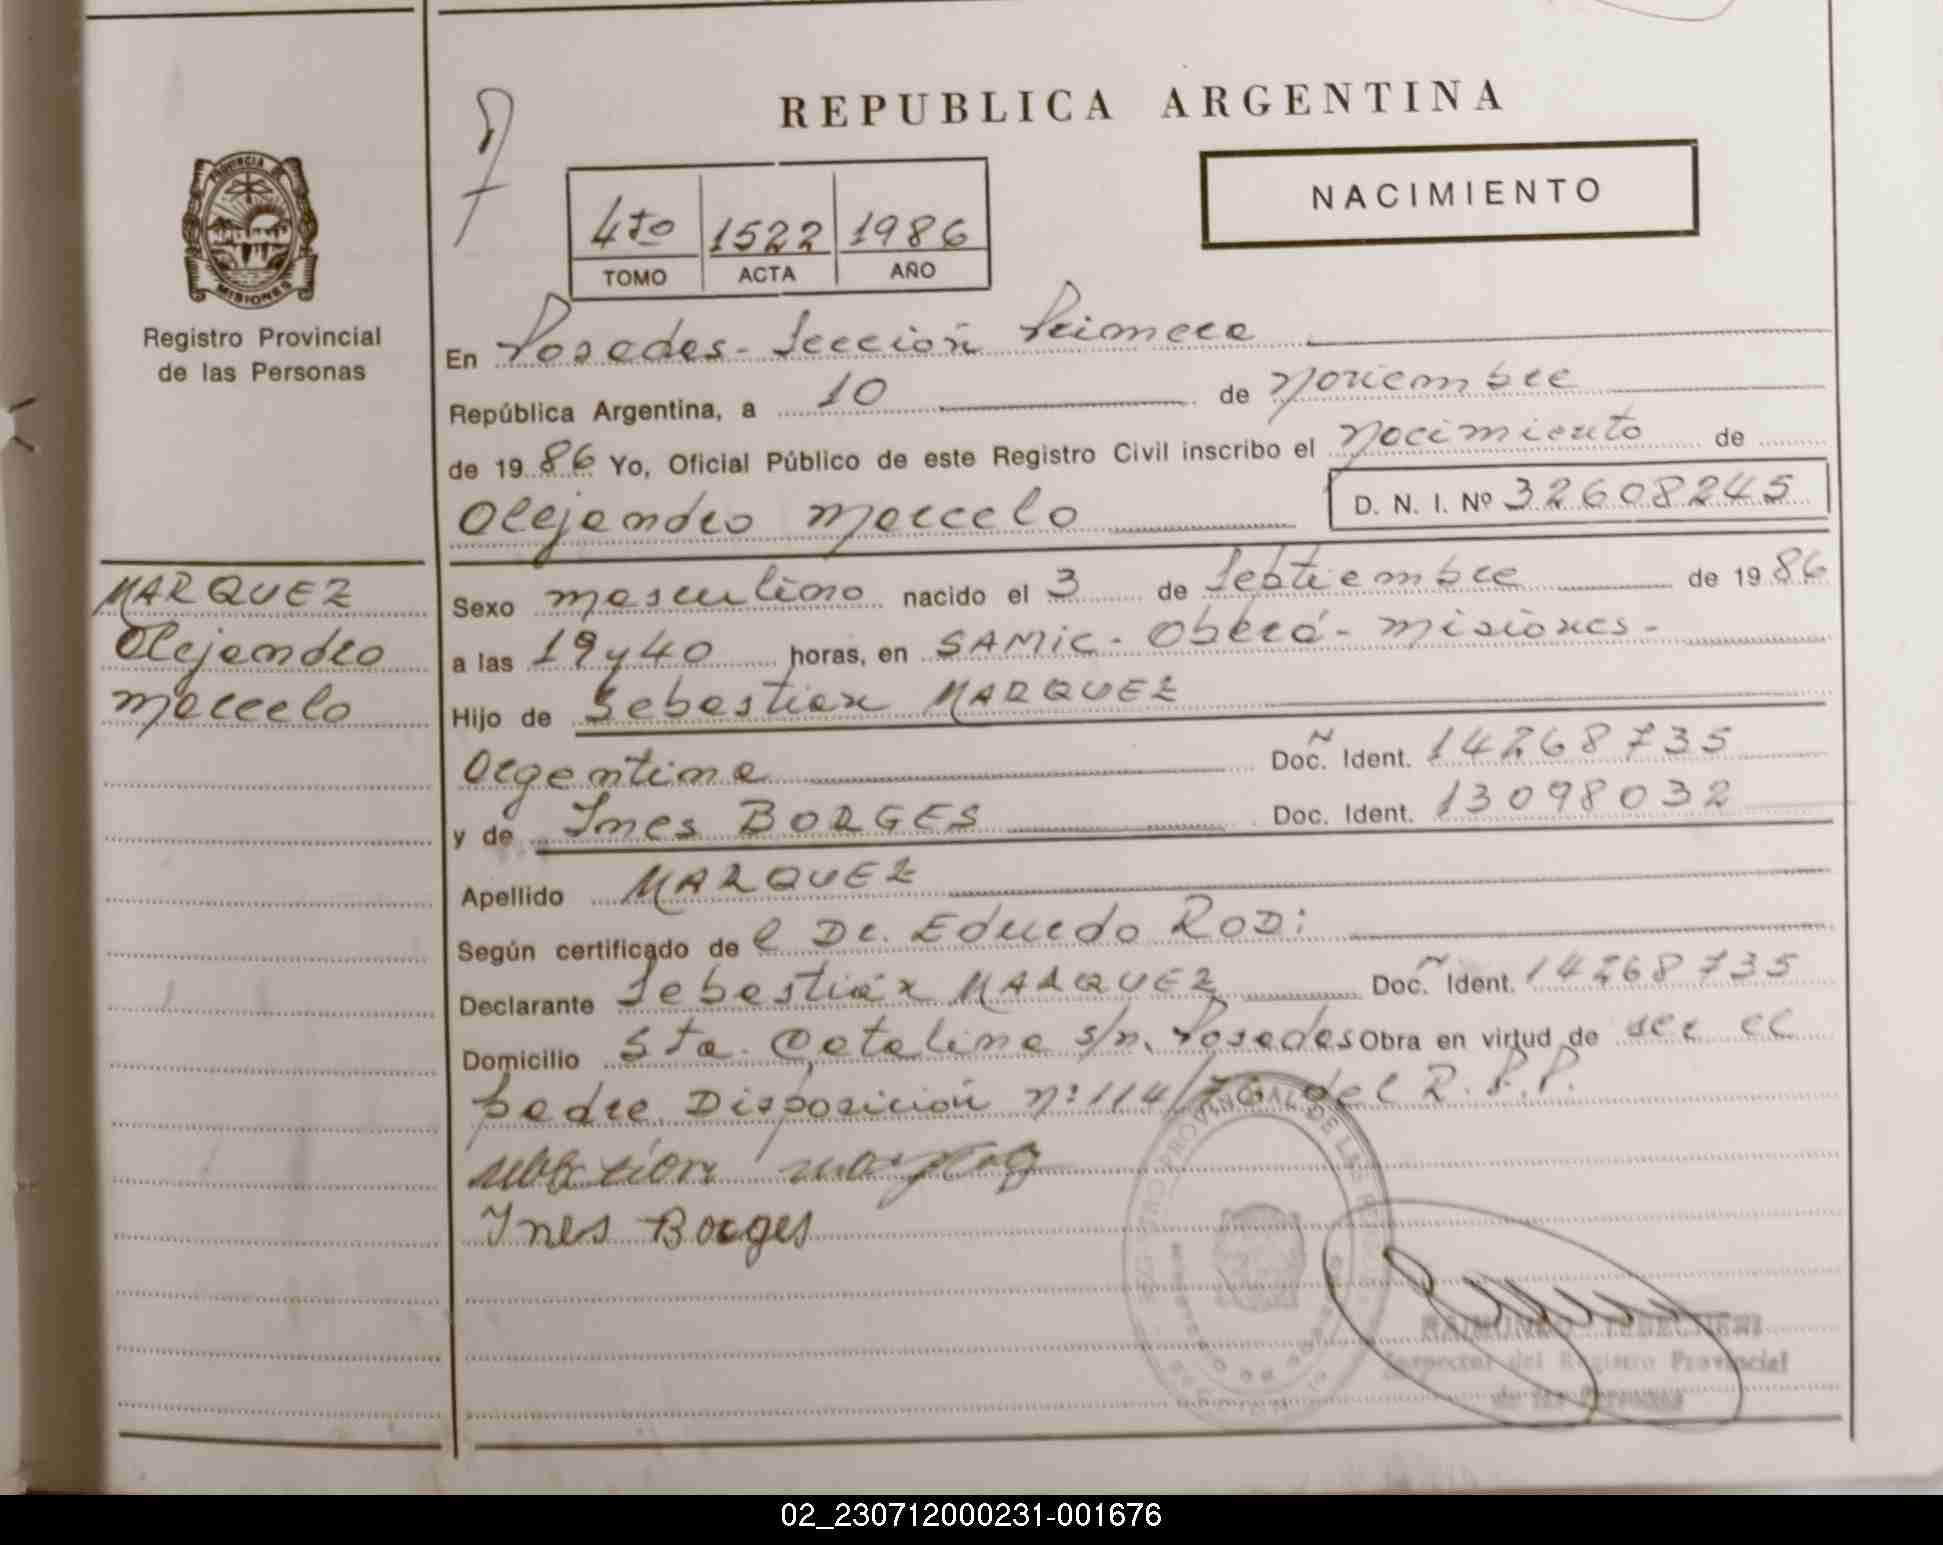 REPUBLICA ARGENTINA
NACIMIENTO
4to 1522 1986
TOMO ACTA AÑO
PROVINCIA DE
MISIONES
Registro Provincial
de las Personas
En Posadas - Sección Primera
República Argentina, a 10 de Noviembre
de 1986 Yo, Oficial Público de este Registro Civil inscribo el Nacimiento de
Alejandro Marcelo D. N. I. Nº 32608245
MARQUEZ
Alejandro
Marcelo
Sexo masculino nacido el 3 de Septiembre de 1986
a las 19 y 40 horas, en SAMIC - Oberá - Misiones -
Hijo de Sebastian MARQUEZ
Argentina Doc. Ident. 14268735
y de Ines BORGES Doc. Ident. 13098032
Apellido MARQUEZ
Según certificado de l Dr. Eduardo RODI
Declarante Sebastián MARQUEZ Doc. Ident. 14268735
Domicilio Sta. Catalina s/n. Posadas Obra en virtud de ser el
padre. Disposición nº 114/76 del R.P.P.
Ines Borges
REGISTRO PROVINCIAL DE LAS
Inspector del Registro Provincial
de las Personas
02_230712000231-001676